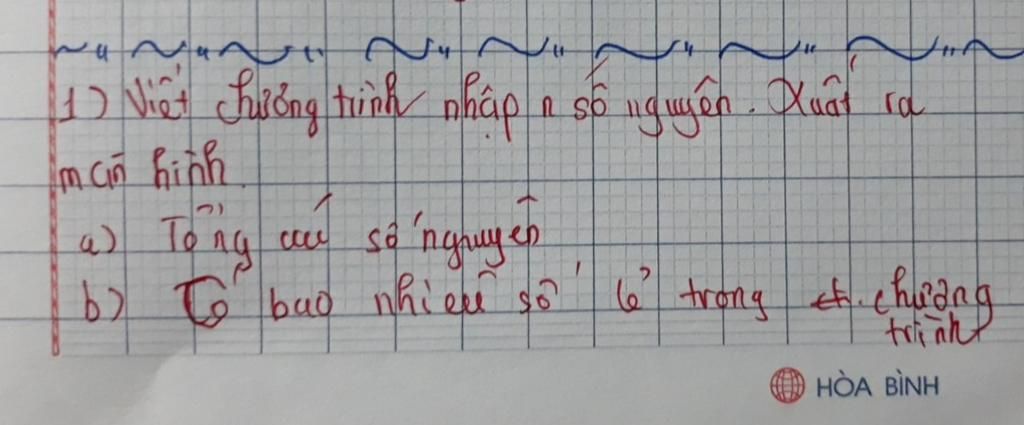 1) Viết chương trình nhập n số nguyên. Xuất ra
màn hình
a) Tổng các số nguyên
b) Có bao nhiêu số lẻ trong ct. chương
trình
HÒA BÌNH